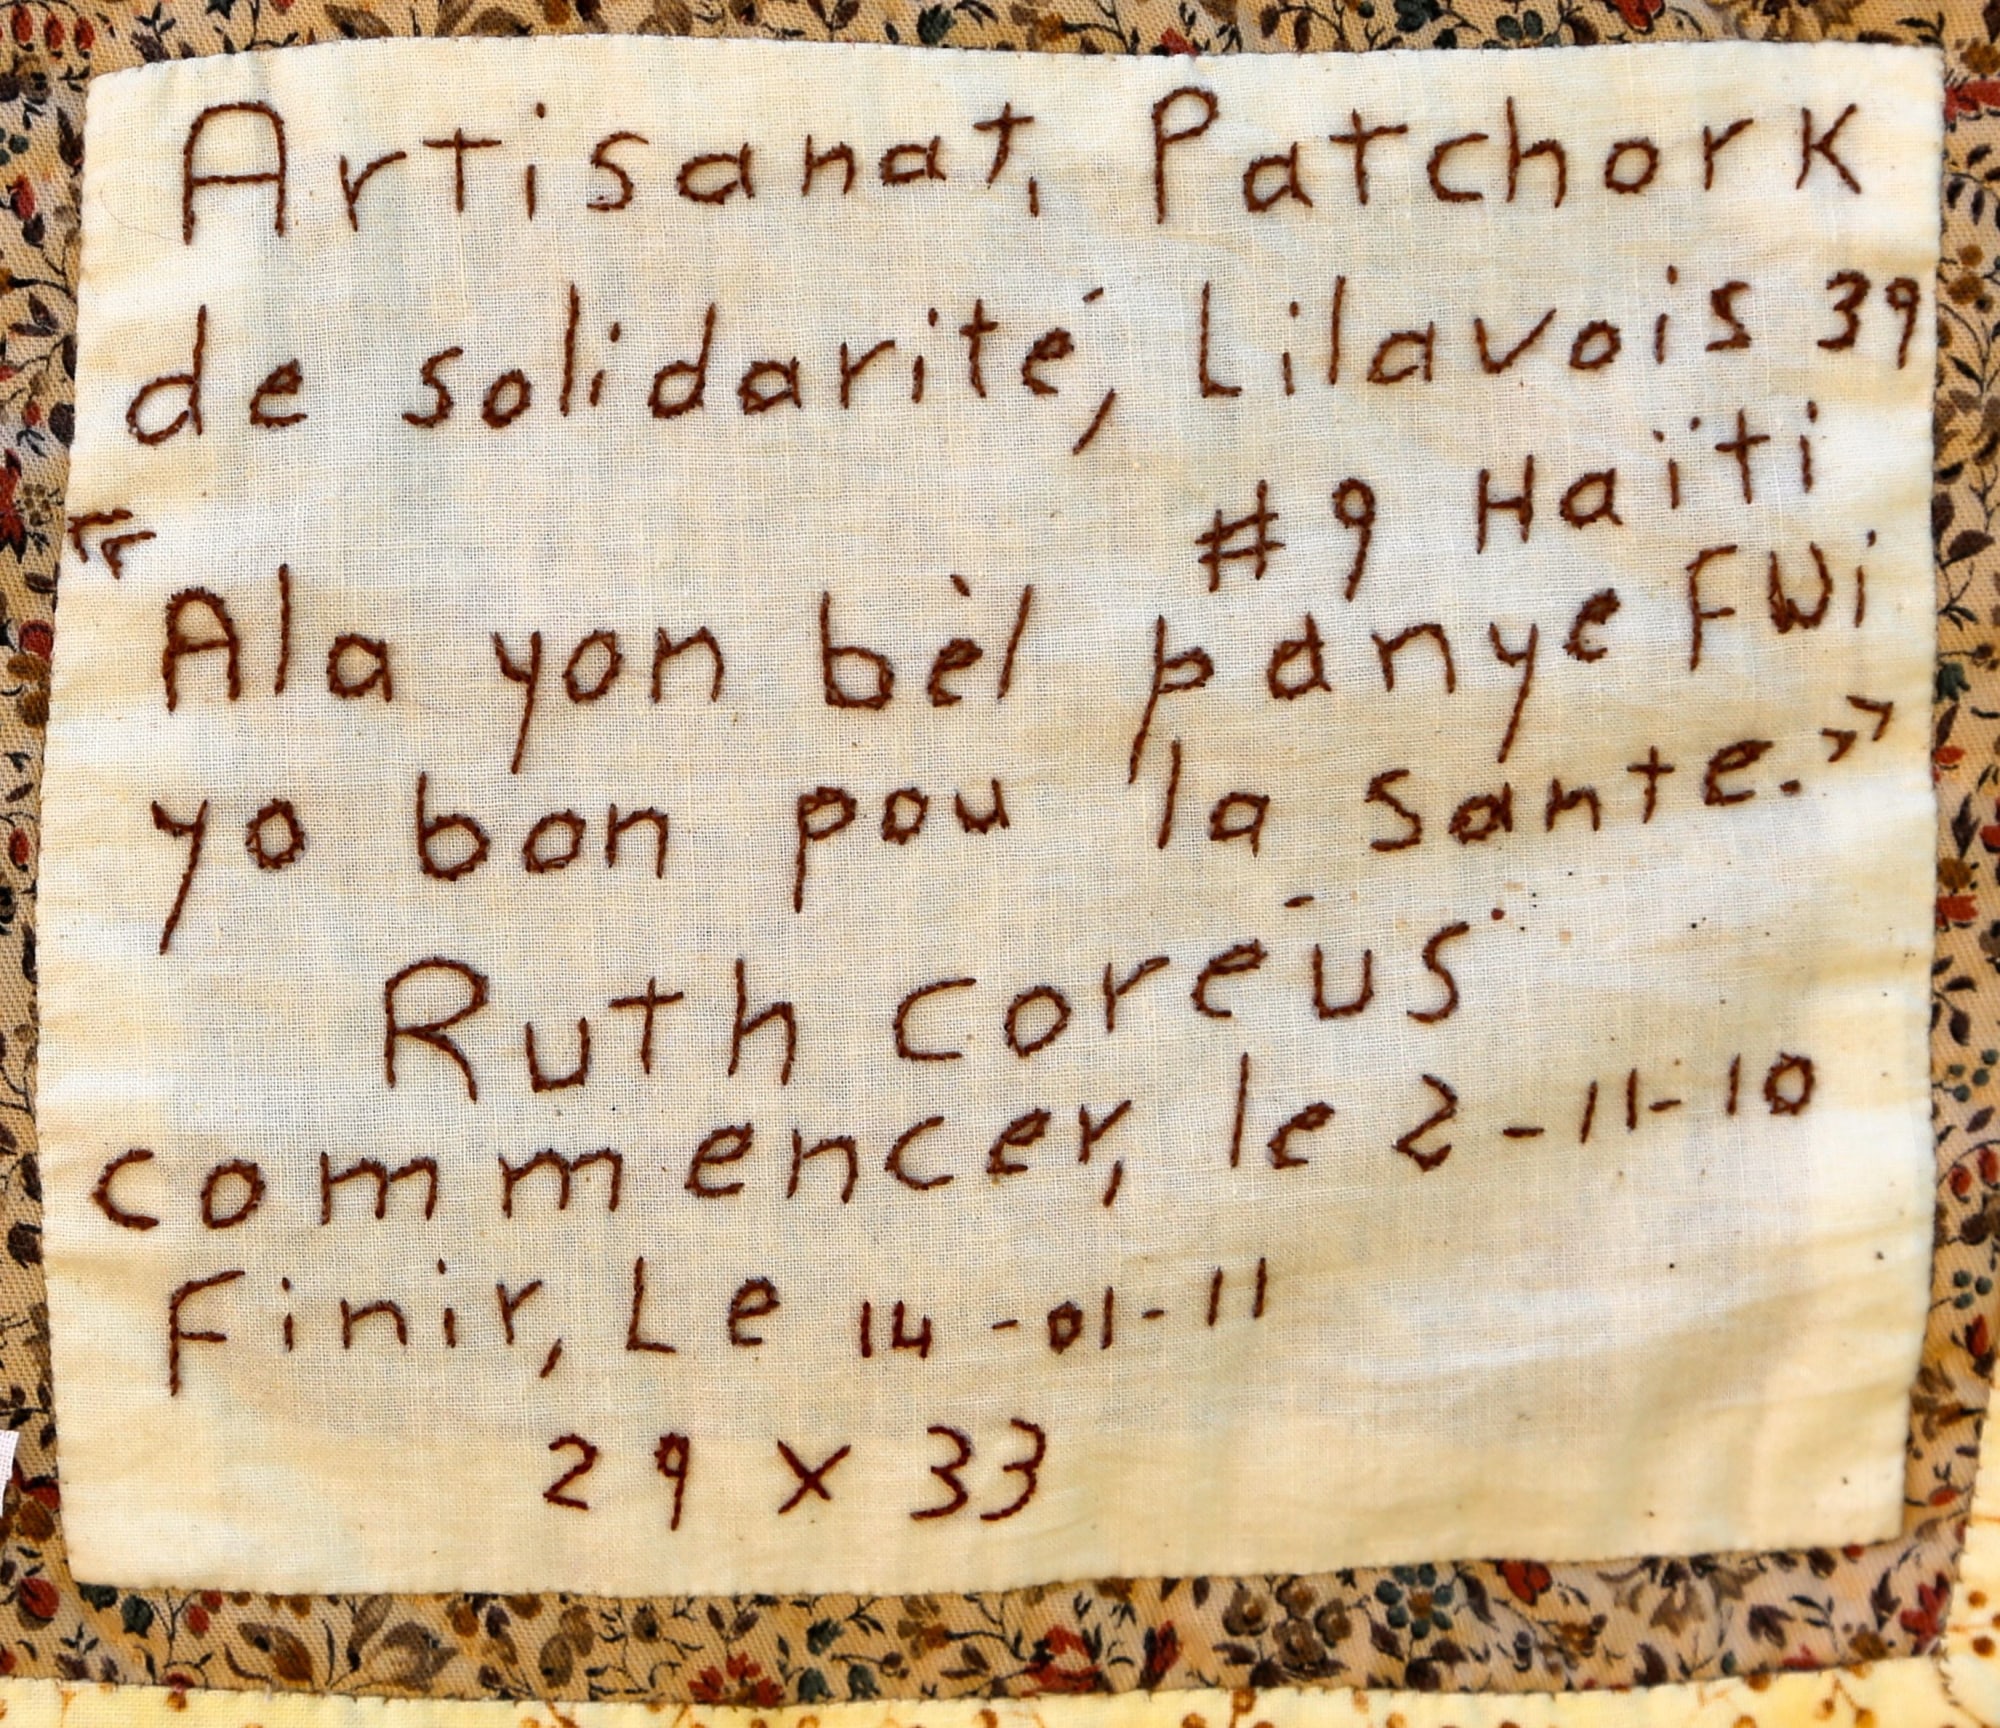 Artisanat, Patchork
de solidarité, Lilavois 39
#9 Haïti
«Ala yon bèl panye Fwi
yo bon pou la sante.»
Ruth coreus
commencer, le 2-11-10
Finir, Le 14-01-11
29 x 33